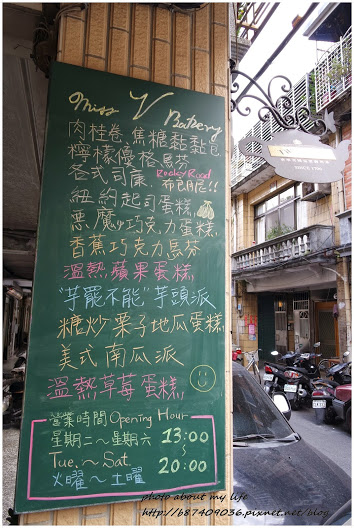 Miss V Bakery
肉桂卷 焦糖黏黏包
檸檬優格馬芬
各式司康 Rocky Road 布朗尼!!
紐約起司蛋糕
惡魔巧克力蛋糕
香蕉巧克力馬芬
溫熱蘋果蛋糕
"芋罷不能"芋頭派
糖炒栗子地瓜蛋糕
美式南瓜派
溫熱草莓蛋糕
營業時間 Opening Hour
星期二~星期六 13:00
Tue. ~ Sat ~
火曜~土曜 20:00
photo about my life
http://b87409036.pixnet.net/blog